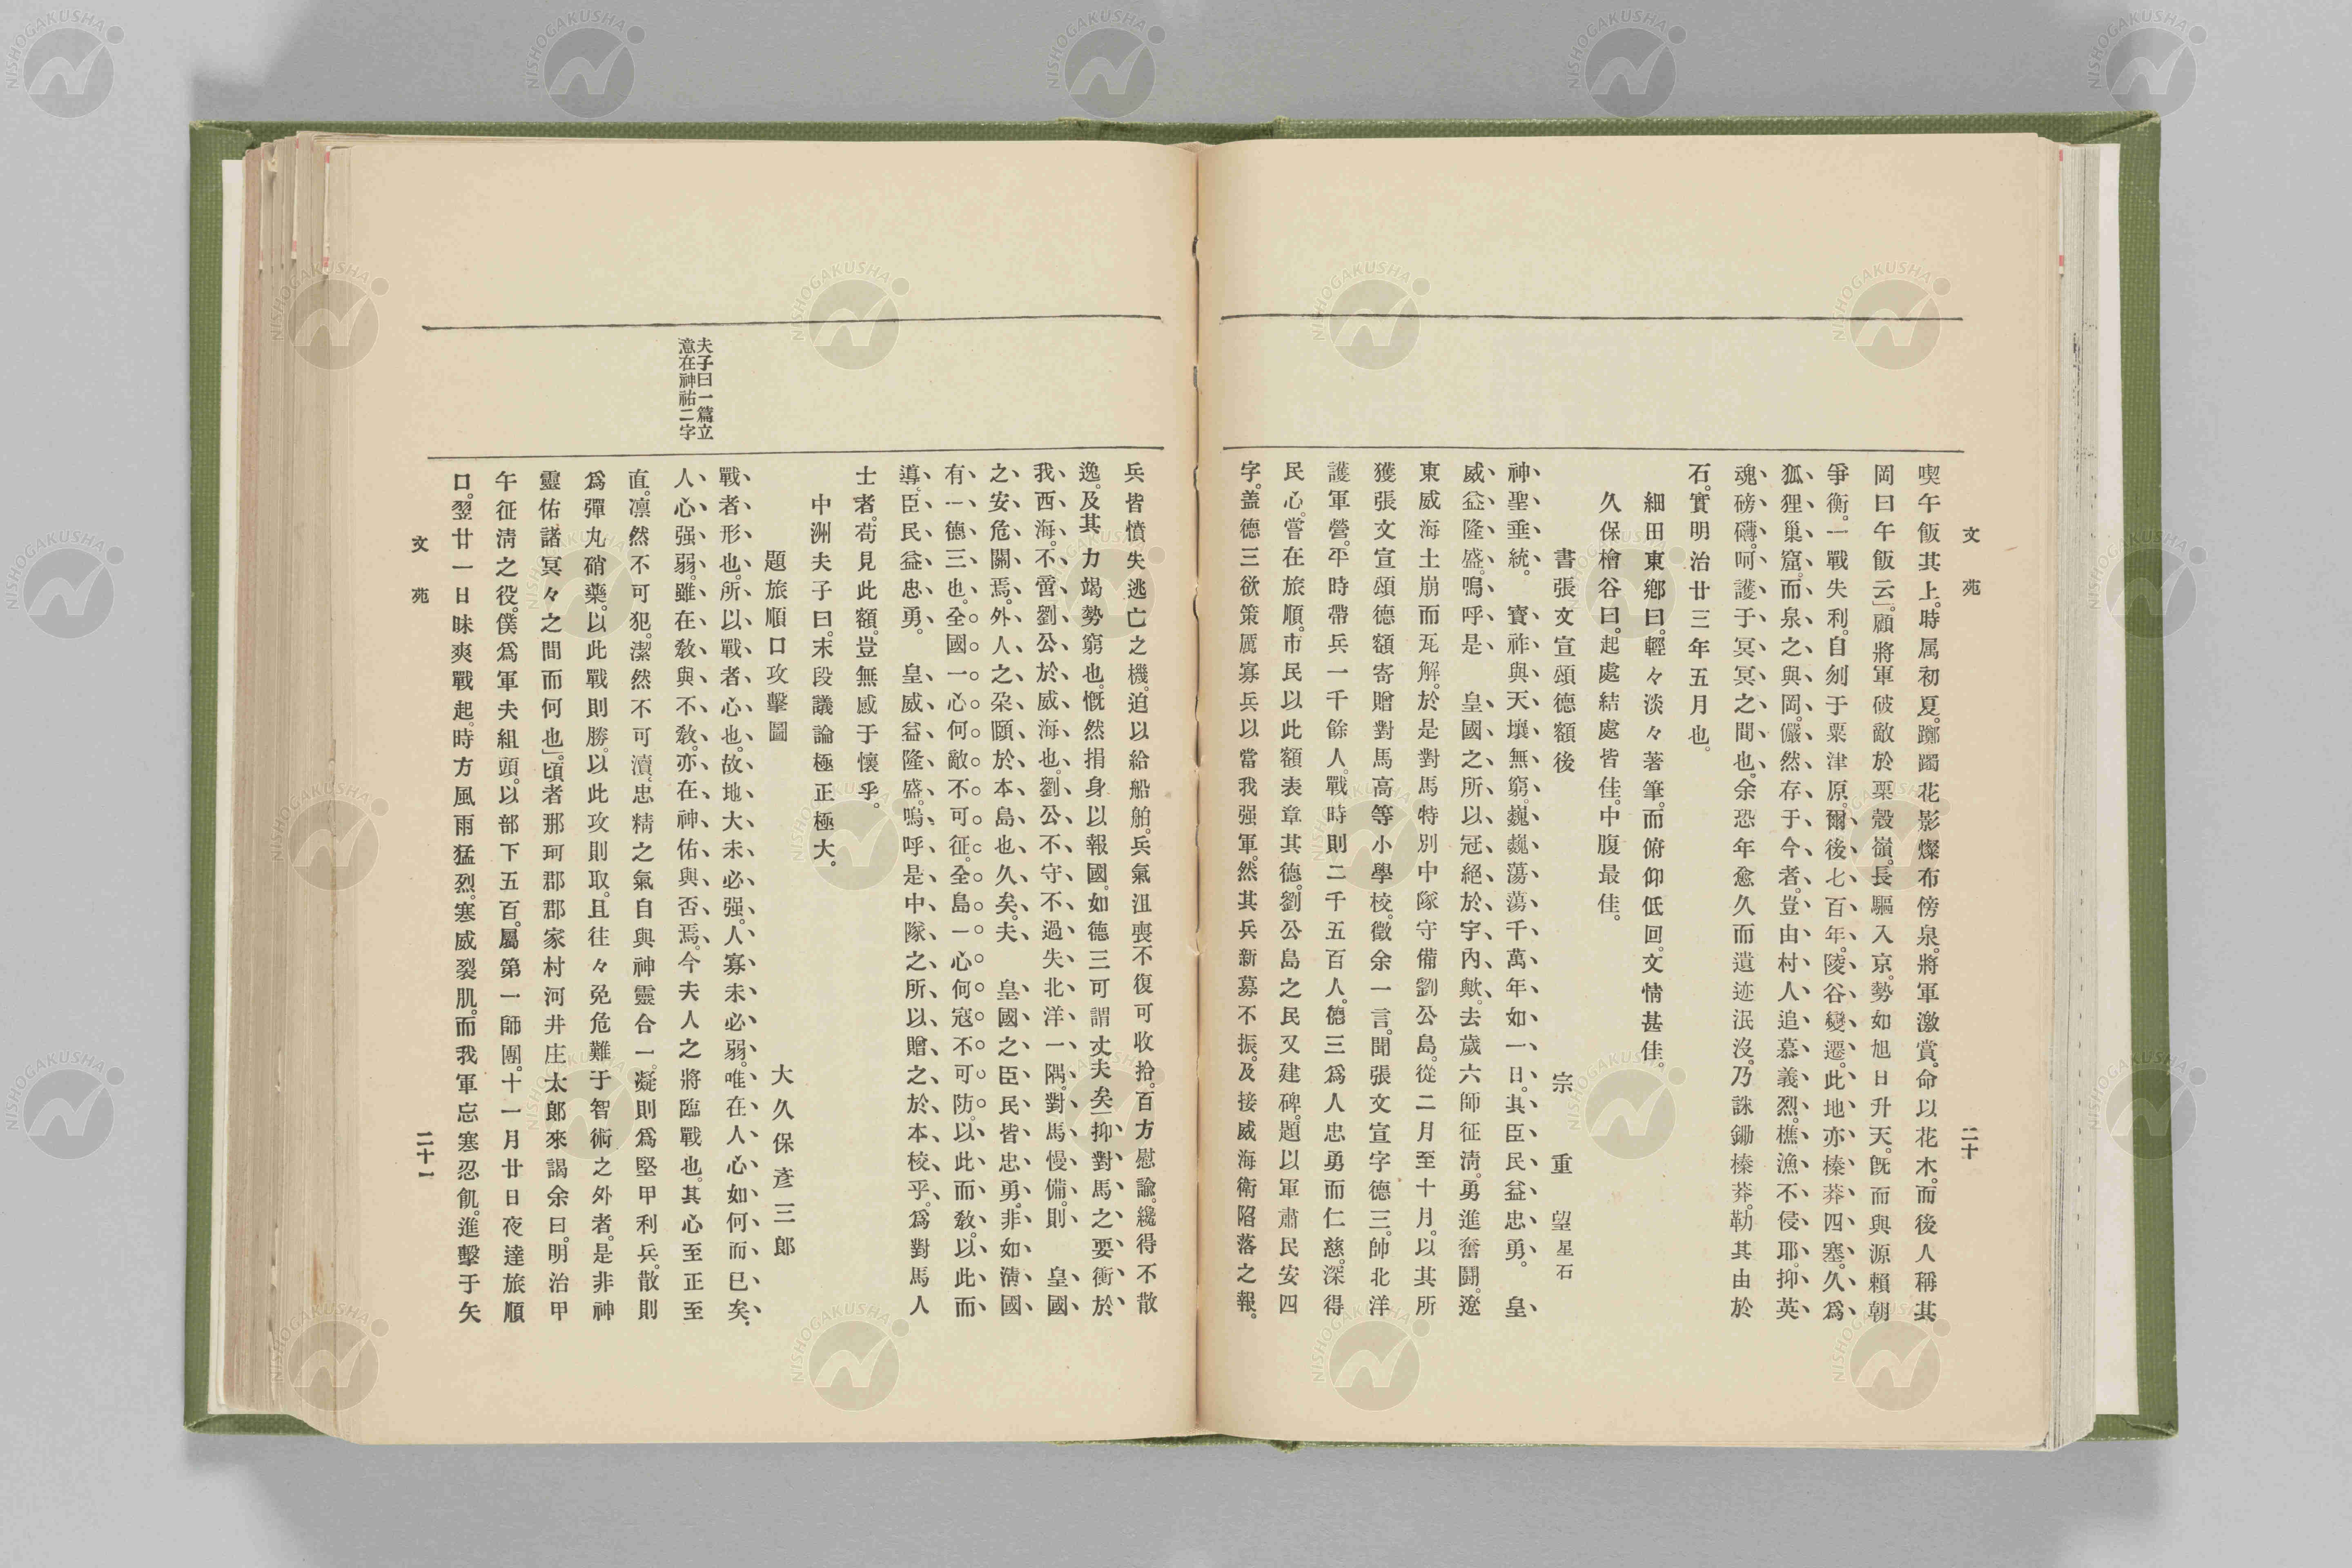 文苑
二十
喫午飯其上。時属初夏。躑躅花影燦布傍泉。將軍激賞。命以花木。而後人稱其
岡曰午飯云」。顧將軍破敵於栗殼嶺。長驅入京。勢如旭日升天。既而與源賴朝
爭衡。一戰失利。自刎于粟津原。爾後七百年。陵谷變遷。此地亦榛莽四塞。久爲
狐狸巢窟。而泉之與岡。儼然存于今者。豈由村人追慕義烈。樵漁不侵耶。抑英
魂磅礴。呵護于冥冥之間也。余恐年愈久而遺迹泯沒。乃誅鋤榛莽。勒其由於
石。實明治廿三年五月也。
細田東鄕曰。輕々淡々著筆。而俯仰低回。文情甚佳。
久保檜谷曰。起處結處皆佳。中腹最佳。
書張文宣頌德額後
宗重望星石
神聖垂統。寳祚與天壤無窮。巍巍蕩蕩千萬年如一日。其臣民益忠勇。皇
威益隆盛。嗚呼是皇國之所以冠絕於宇內歟。去歲六師征淸。勇進奮鬪。遼
東威海土崩而瓦解。於是對馬特別中隊守備劉公島。從二月至十月。以其所
獲張文宣頌德額寄贈對馬高等小學校。徵余一言。聞張文宣字德三。帥北洋
護軍營。平時帶兵一千餘人。戰時則二千五百人。德三爲人忠勇而仁慈。深得
民心。嘗在旅順。市民以此額表章其德。劉公島之民又建碑。題以軍肅民安四
字。盖德三欲策厲寡兵以當我强軍。然其兵新募不振。及接威海衛陷落之報。
兵皆憤失逃亡之機。迫以給船舶。兵氣沮喪不復可收拾。百方慰諭。纔得不散
逸。及其力竭勢窮也。慨然捐身以報國。如德三可謂丈夫矣」抑對馬之要衝於
我西海。不啻劉公於威海也。劉公不守不過失北洋一隅。對馬慢備。則皇國
之安危關焉。外人之朶頤於本島也久矣。夫皇國之臣民皆忠勇。非如淸國
有一德三也。全國一心何敵不可征。全島一心何寇不可防。以此而敎。以此而
導。臣民益忠勇。皇威益隆盛。嗚呼是中隊之所以贈之於本校乎。爲對馬人
士者。苟見此額。豈無感于懷乎。
中洲夫子曰。末段議論極正極大。
題旅順口攻擊圖
大久保彥三郎
夫子曰一篇立
意在神祐二字
戰者形也。所以戰者心也。故地大未必强。人寡未必弱。唯在人心如何而已矣。
人心强弱。雖在敎與不敎。亦在神佑與否焉。今夫人之將臨戰也。其心至正至
直。凛然不可犯。潔然不可瀆。忠精之氣自與神靈合一。凝則爲堅甲利兵。散則
爲彈丸硝藥。以此戰則勝。以此攻則取。且往々免危難于智術之外者。是非神
靈佑諸冥々之間而何也」。頃者那珂郡郡家村河井庄太郞來謁余曰。明治甲
午征淸之役。僕爲軍夫組頭。以部下五百。屬第一師團。十一月廿日夜達旅順
口。翌廿一日昧爽戰起。時方風雨猛烈。寒威裂肌。而我軍忘寒忍飢。進擊于矢
文苑
二十一